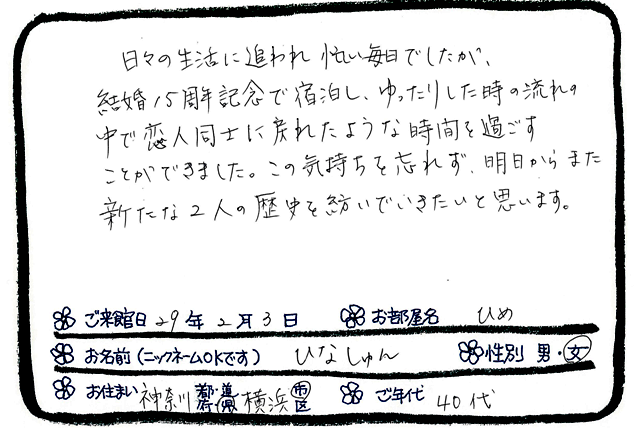 日々の生活に追われ忙しい毎日でしたが、
結婚15周年記念で宿泊し、ゆったりした時の流れの
中で恋人同士に戻れたような時間を過ごす
ことができました。この気持ちを忘れず、明日からまた
新たな2人の歴史を紡いでいきたいと思います。
ご来館日 29年2月3日 お部屋名 ひめ
お名前(ニックネームOKです) ひなしゅん 性別 男・女
お住まい 神奈川 都・道府・県 横浜 市区 ご年代 40代